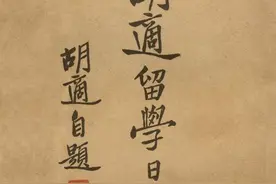 胡適留學日
胡適自題